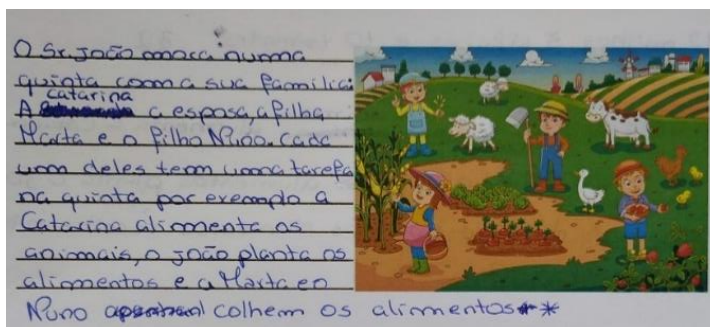 O Sr. João mora numa
quinta com a sua família:
A Catarina a esposa, a filha
Marta e o filho Nuno. Cada
um deles tem uma tarefa
na quinta por exemplo a
Catarina alimenta os
animais, o João planta os
alimentos e a Marta e o
Nuno colhem os alimentos**